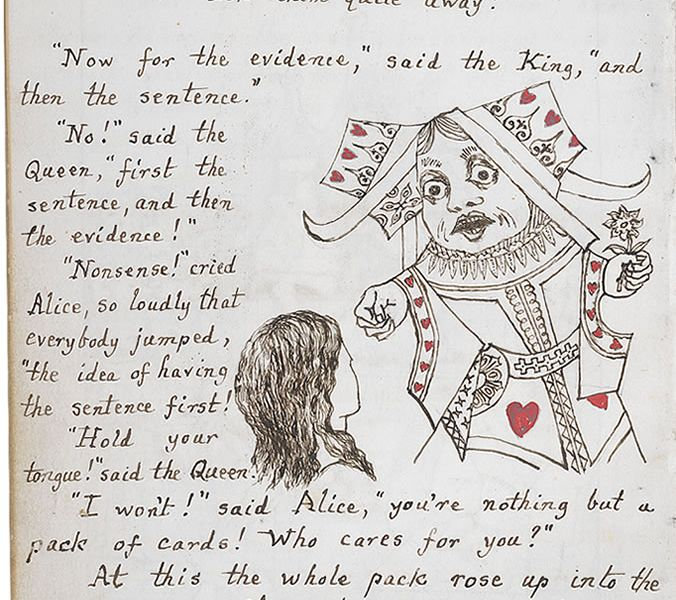 quite away.
"Now for the evidence," said the King, "and
then the sentence."
"No!" said the
Queen, "first the
sentence, and then
the evidence!"
"Nonsense!" cried
Alice, so loudly that
everybody jumped,
"the idea of having
the sentence first!
"Hold your
tongue!" said the Queen.
"I won't!" said Alice, "you're nothing but a
pack of cards! Who cares for you?"
At this the whole pack rose up into the